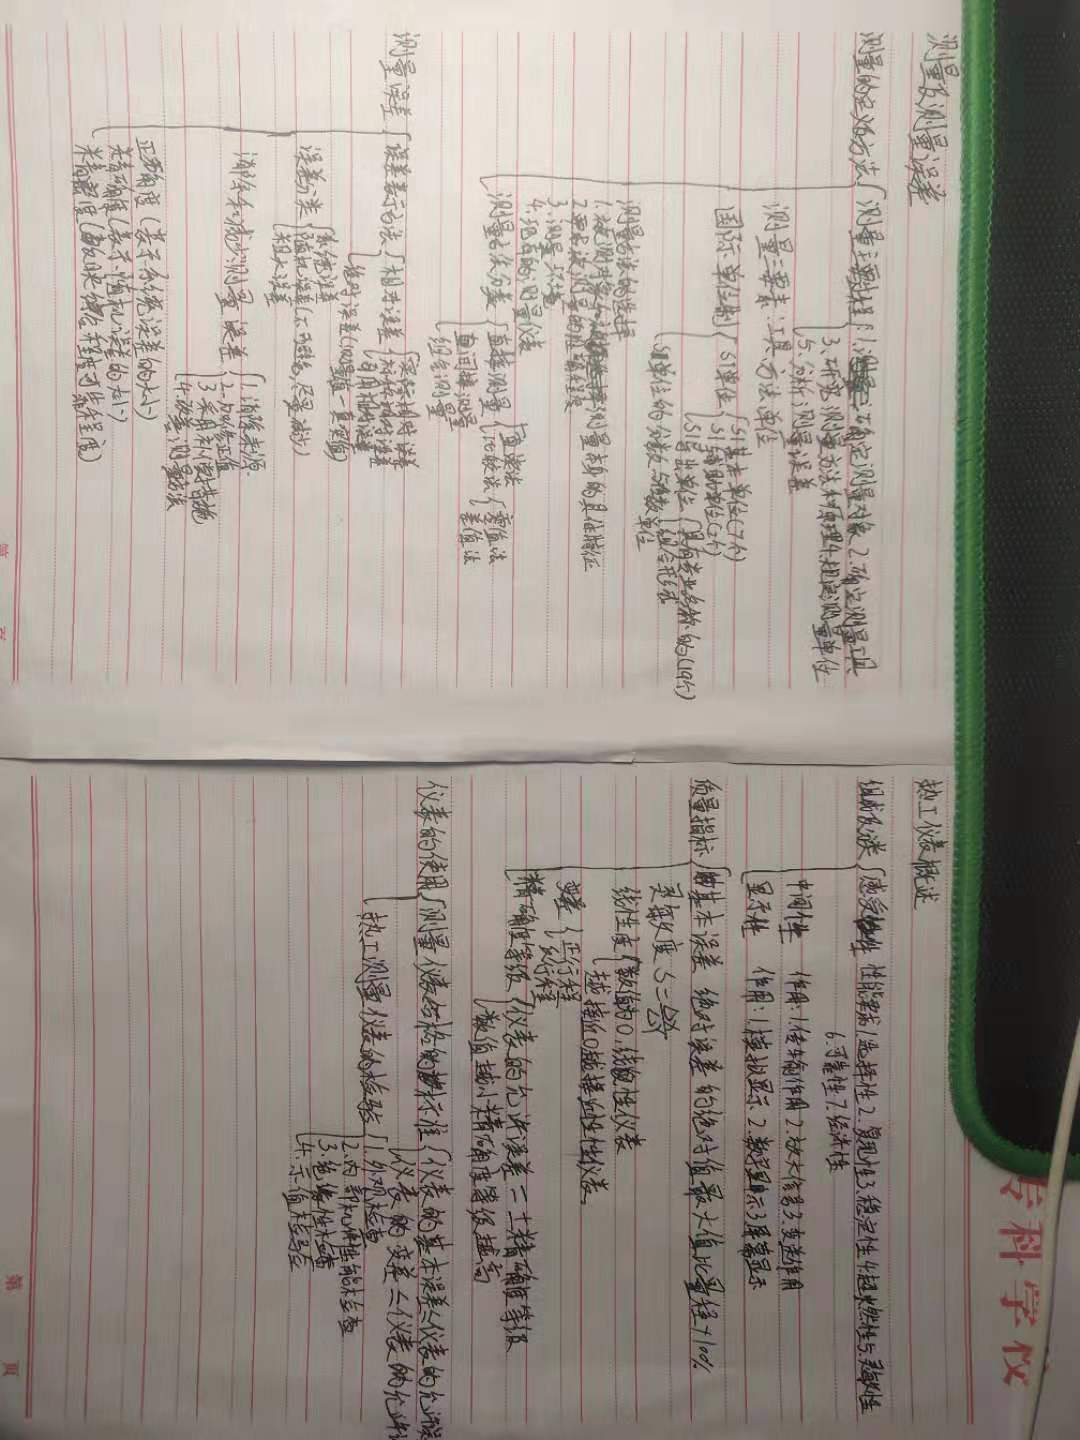 测量及测量误差
测量的定义及方法
测量主要过程:1.确定测量对象 2.确定测量工具
3.研究测量方法和原理 4.规定测量单位
5.分析测量误差
测量三要素:工具、方法、单位
国际单位制
SI单位
SI基本单位(7个)
SI辅助单位(2个)
SI导出单位
具有专业名称的(19个)
组合形式
SI单位的分数与倍数单位
测量方法的选择
1.被测对象和测量本身的具体特征
2.要求被测量的准确程度
3.测量环境
4.现有的测量仪表
测量方法分类
直接测量
直读法
比较法
零值法
差值法
间接测量
组合测量
测量误差
误差表示方法
相对误差
实际相对误差
标称相对误差
引用相对误差
绝对误差(测量值-真实值)
误差分类
系统误差
随机误差(不可避免,尽量减小)
粗大误差
消除和减少测量误差
1.消除来源
2.加修正值
3.采用补偿措施
4.改善测量方法
正确度(表示系统误差的大小)
精密度(表示随机误差的大小)
准确度(反映综合程度可靠程度)
第 页
热工仪表概述
组成及分类
感受件 性能要求:1.选择性2.复现性3.稳定性4.超燃性5.灵敏性
6.可靠性7.经济性
中间件 作用:1.传输作用2.放大信号3.变送作用
显示件 作用:1.模拟显示2.数字显示3.屏幕显示
质量指标
基本误差 绝对误差的绝对值最大值比量程×100%
灵敏度 S=
线性度
数值为0,线性仪表
越接近0越接近线性仪表
变差
正行程
反行程
精确度等级
仪表的允许误差=±精确度等级
数值越小精确度等级越高
仪表的使用
测量仪表合格的标准
仪表的基本误差≤仪表的允许误
仪表的变差≤仪表的允许
热工测量仪表的检验
1.外观检查
2.内部机件性能检查
3.绝缘性检查
4.示值检验
第 页
专科学校